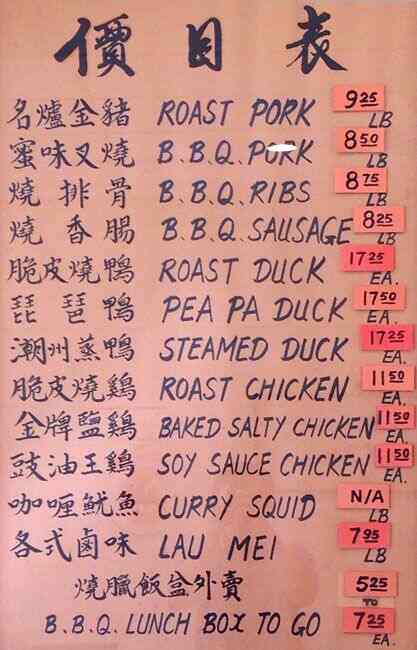 價目表
名爐金豬 ROAST PORK 9 25 LB
蜜味叉燒 B.B.Q. PORK 8 50 LB
燒排骨 B.B.Q. RIBS 8 75 LB
燒香腸 B.B.Q. SAUSAGE 8 25 LB
脆皮燒鴨 ROAST DUCK 17 25 EA.
琵琶鴨 PEA PA DUCK 17 50 EA.
潮州蒸鴨 STEAMED DUCK 17 25 EA.
脆皮燒鷄 ROAST CHICKEN 11 50 EA.
金牌鹽鷄 BAKED SALTY CHICKEN 11 50 EA.
豉油王鷄 SOY SAUCE CHICKEN 11 50 EA.
咖喱魷魚 CURRY SQUID N/A LB
各式鹵味 LAU MEI 7 95 LB
燒臘飯盒外賣 5 25 TO
B.B.Q. LUNCH BOX TO GO 7 25 EA.